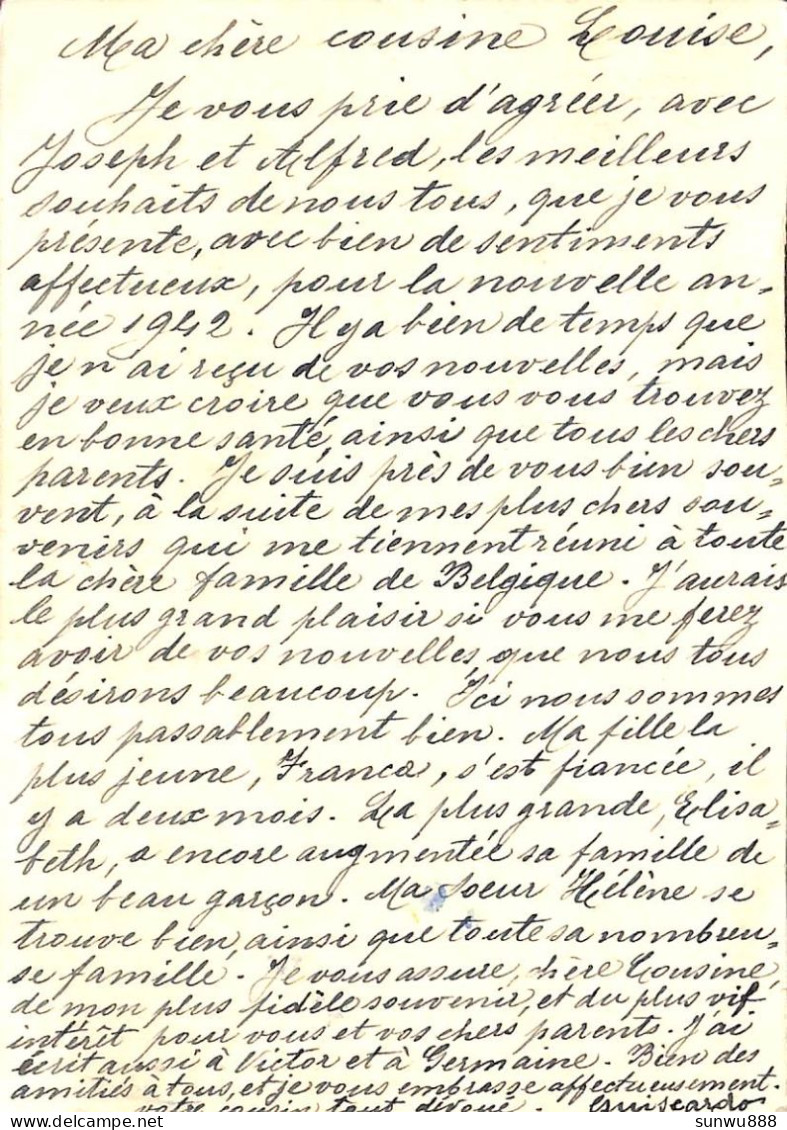 Ma chère cousine Louise,
Je vous prie d'agréer, avec
Joseph et Alfred, les meilleurs
souhaits de nous tous, que je vous
présente, avec bien de sentiments
affectueux, pour la nouvelle an-
née 1942. Il y a bien de temps que
je n'ai reçu de vos nouvelles, mais
je veux croire que vous vous trouvez
en bonne santé, ainsi que tous les chers
parents. Je suis près de vous bien sou-
vent, à la suite de mes plus chers sou-
venirs qui me tiennent réuni à toute
la chère famille de Belgique. J'aurais
le plus grand plaisir si vous me ferez
avoir de vos nouvelles, que nous tous
désirons beaucoup. Ici nous sommes
tous passablement bien. Ma fille la
plus jeune, Franca, s'est fiancée, il
y a deux mois. La plus grande, Elisa-
beth, a encore augmentée sa famille de
un beau garçon. Ma soeur Hélène se
trouve bien, ainsi que toute sa nombreu-
se famille. Je vous assure, chère Cousine,
de mon plus fidèle souvenir, et du plus vif
intérêt pour vous et vos chers parents. J'ai
écrit aussi à Victor et à Germaine. Bien des
amitiés à tous, et je vous embrasse affectueusement.
votre cousin tout dévoué. Guiscardo
sunwu888
DELCAMPE.NET
sunwu888